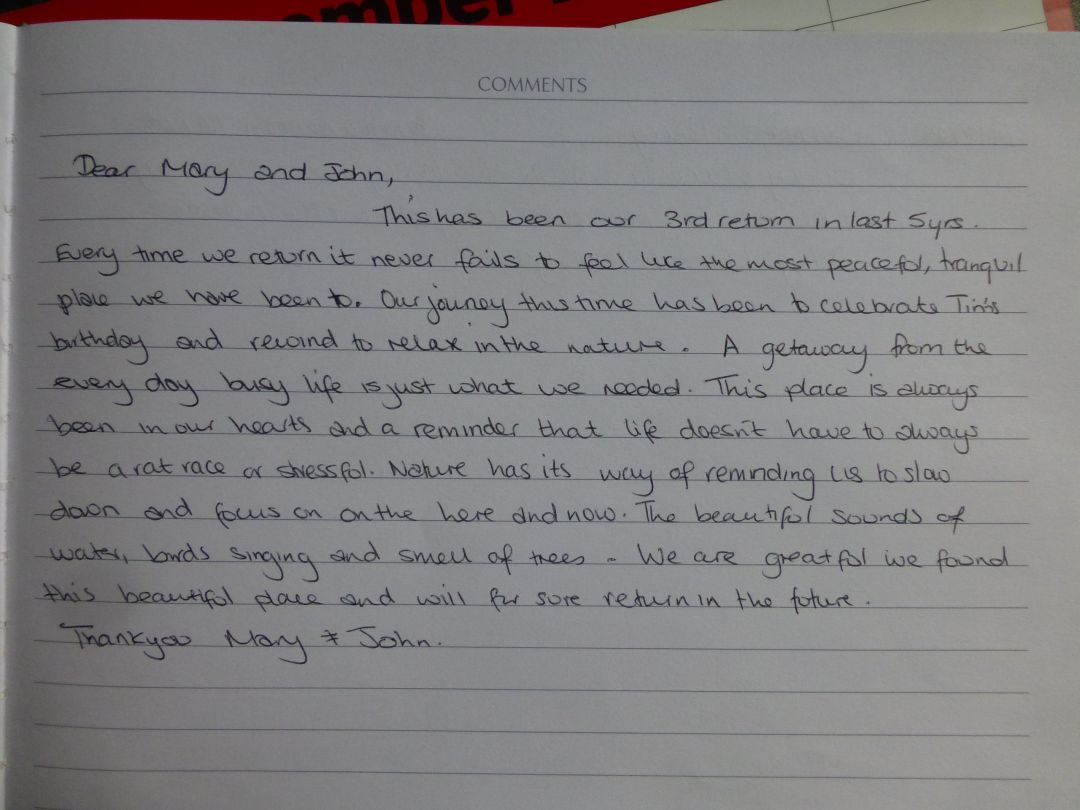 ember
COMMENTS
Dear Mary and John,
This has been our 3rd return in last 5yrs.
Every time we return it never fails to feel like the most peaceful, tranquil
place we have been to. Our journey this time has been to celebrate Tim's
birthday and rewind to relax in the nature. A getaway from the
every day busy life is just what we needed. This place is always
been in our hearts and a reminder that life doesn't have to always
be a rat race or stressful. Nature has its way of reminding us to slow
down and focus on on the here and now. The beautiful sounds of
water, birds singing and smell of trees - We are greatful we found
this beautiful place and will for sure return in the future.
Thankyou Mary & John.